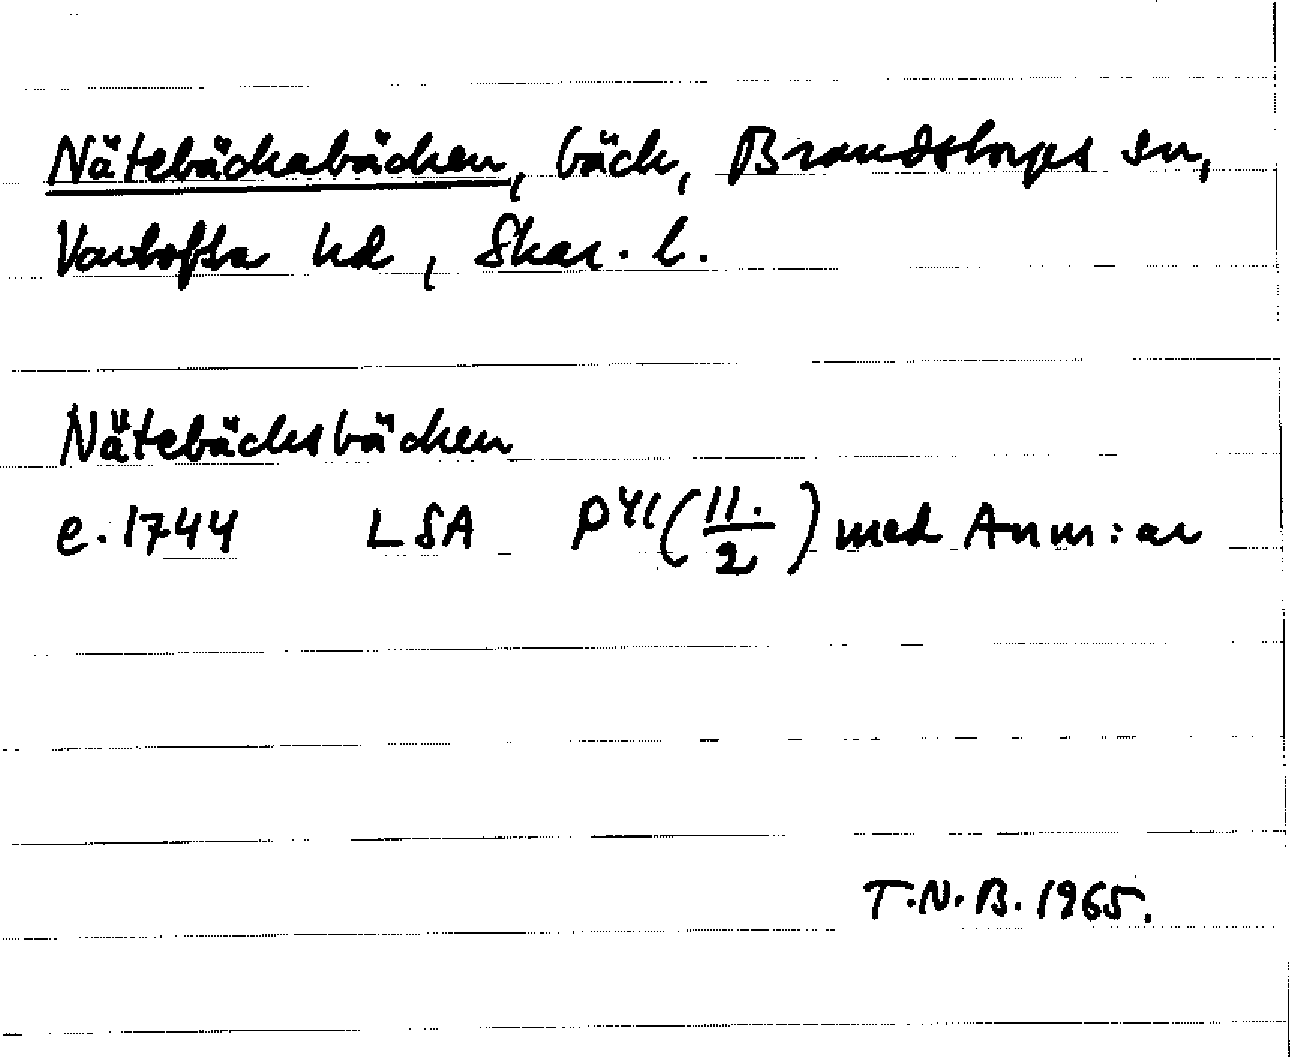 Nätebäckabäcken, bäck, Brandstorps sn,
Vartofta hd, Skar. l.
Nätebäcksbäcken
e. 1744 LSA P41 (11./2) med Anm:ar
T.N.B. 1965.